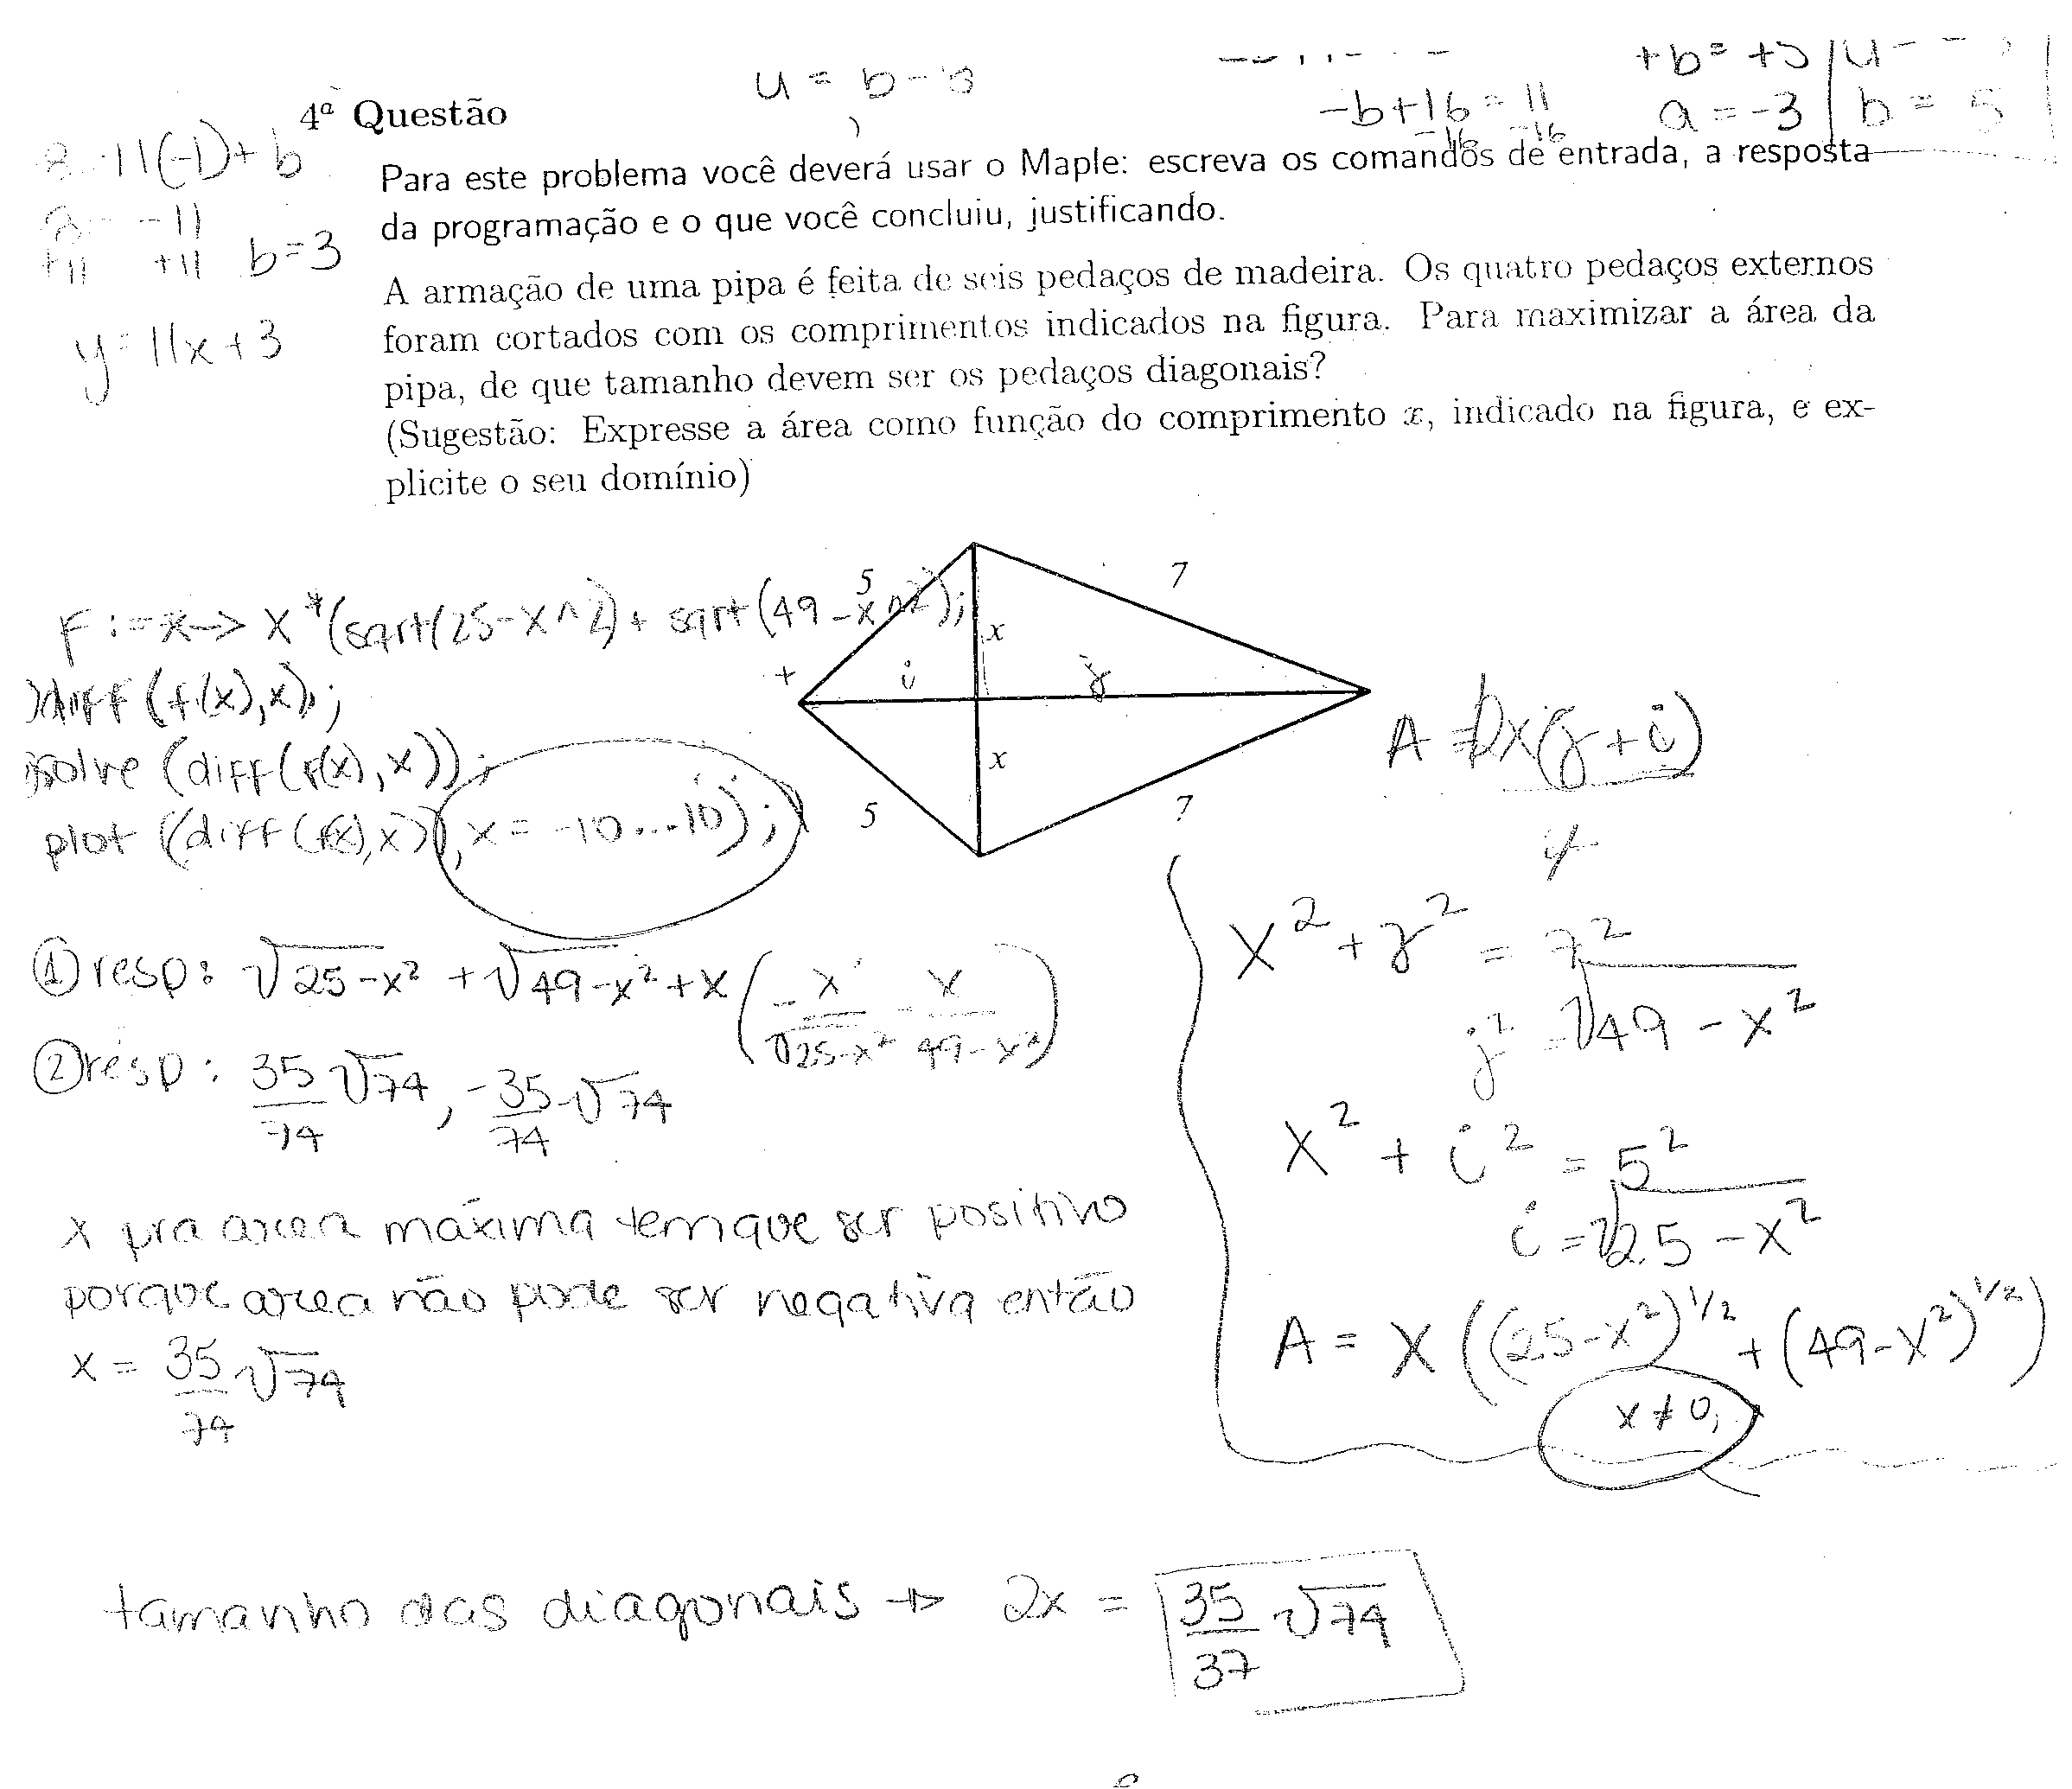 u = b - 3
-b+16 = 11
-16 -16
+b = +5
a = -3
b = 5
4ª Questão
11(-1)+b
-11
+11 +11 b=3
y=11x+3
Para este problema você deverá usar o Maple: escreva os comandos de entrada, a resposta
da programação e o que você concluiu, justificando.
A armação de uma pipa é feita de seis pedaços de madeira. Os quatro pedaços externos
foram cortados com os comprimentos indicados na figura. Para maximizar a área da
pipa, de que tamanho devem ser os pedaços diagonais?
(Sugestão: Expresse a área como função do comprimento x, indicado na figura, e ex-
plicite o seu domínio)
5 7
x
i j
x
5 7
F:=x->x*(sqrt(25-x^2)+sqrt(49-x^2);
>diff(f(x),x);
solve(diff(f(x),x));
plot((diff(f(x),x)),x=-10...10);
x(j+i)
① resp: √25-x² + √49-x² + x(-x/√25-x² - x/49-x²)
② resp: 35/74 √74, -35/74 √74
x pra area máxima tem que ser positivo
porque area não pode ser negativa então
x = 35/74 √74
x² + j² = 7²
j² = √49-x²
x² + i² = 5²
i = √25-x²
A = x((25-x²)^1/2 + (49-x²)^1/2)
x≠0,
tamanho das diagonais → 2x = 35/37 √74